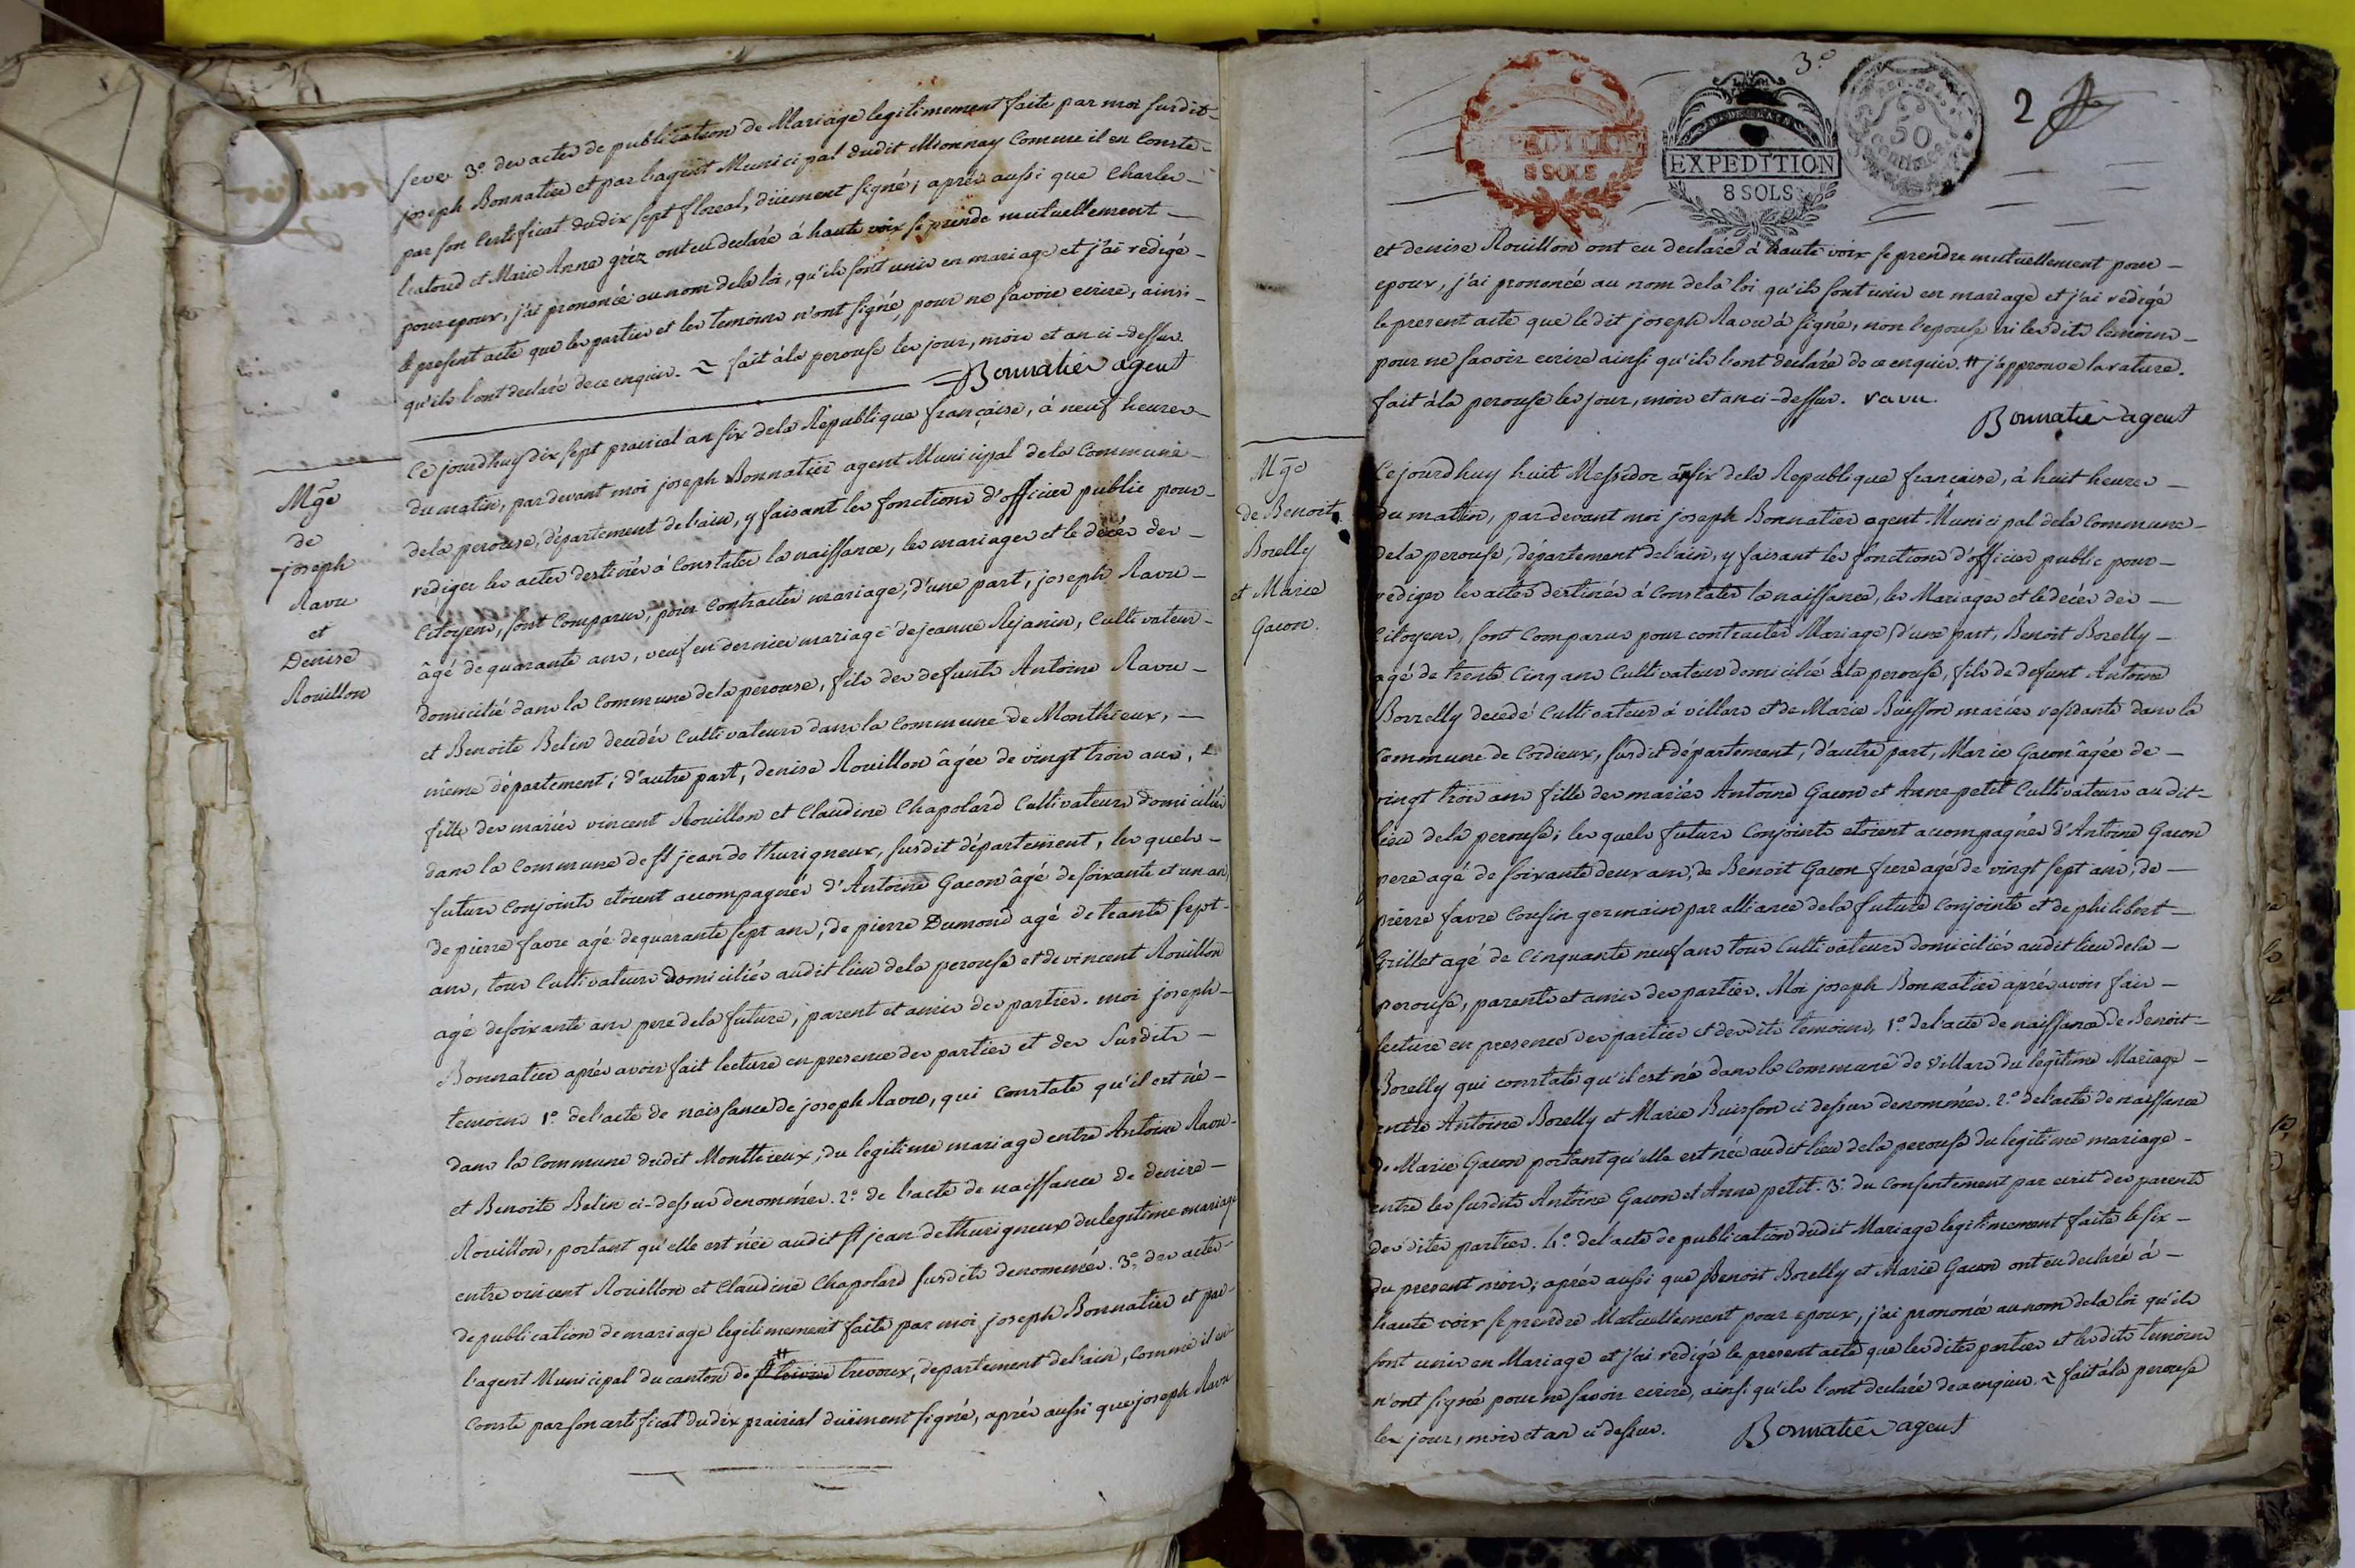 seve 3.º des actes de publication de Mariage legitimement faite par moi susdit
joseph Bonnatier et par l'agent Municipal dudit Mionnay Comme il en Conste
par son Certificat dudix sept floreal, düement signé; après aussi que Charles
et Marie Anne gréz ont eu declaré à haute voix se prendre mutuellement
pour epoux, j'ai prononcée au nom de la loi, qu'ils sont unis en mariage et j'ai redigé
le present acte que les parties et les temoins n'ont signé, pour ne savoir ecrire, ainsi
qu'ils l'ont declaré de ce enquis. ~ fait à la perouse les jour, mois et an ci-dessus.
Bonnatier agent
Mge
de
joseph
Ravu
et
Denise
Rouillon
Ce jourdhuy dix sept prairial an six de la Republique française, à neuf heures
du matin, pardevant moi joseph Bonnatier agent Municipal de la Commune
de la perouse, département de l'ain, y faisant les fonctions d'officier public pour
rediger les actes destinés à Constater la naissance, les mariages et le décés des
Citoyens, sont Comparus, pour Contracter mariage, d'une part, joseph Ravu
âgé de quarante ans, veuf en dernier mariage de jeanne Rejanin, Cultivateur
domicilié dans la Commune de la perouse, fils des defunts Antoine Ravu
et Benoite Belin decedés Cultivateurs dans la Commune de Monthieux,
même département; d'autre part, denise Rouillon âgée de vingt trois ans,
fille des mariés vincent Rouillon et Claudine Chapolard Cultivateurs domiciliés
dans la Commune de st jean de thurigneux, susdit département, les quels
futurs Conjoints etoient accompagnés d'Antoine Gacon âgé de soixante et un an,
de pierre favre agé de quarante sept ans, de pierre Dumond agé de trante sept
ans, tous Cultivateurs domiciliés audit lieu de la perouse et de vincent Rouillon
agé de soixante ans pere de la future, parent et amis des parties. moi joseph
Bonnatier après avoir fait lecture en presence des parties et des Susdits
temoins 1.º de l'acte de naissance de joseph Ravu, qui Constate qu'il est né
dans la Commune dudit Monthieux, du legitime mariage entre Antoine Ravu
et Benoite Belin ci-dessus denommés. 2.º de l'acte de naissance de denise
Rouillon, portant qu'elle est née audit st jean de thurigneux du legitime mariage
entre vincent Rouillon et Claudine Chapolard susdits denommés. 3.º des actes
de publication de mariage legitimement faite par moi joseph Bonnatier et par
l'agent Municipal du canton de # trevoux, departement de l'ain, Comme il en
Conste par son certificat du dix prairial düement signé, après aussi que joseph Ravu
3.º
EXPEDITION
8 SOLS
EXPEDITION
8 SOLS
50
centimes
2
et denise Rouillon ont eu declaré à haute voix se prendre mutuellement pour
epoux, j'ai prononcée au nom de la loi qu'ils sont unis en mariage et j'ai redigé
le present acte que ledit joseph Ravu à signé, non l'epouse ni lesdits temoins
pour ne savoir ecrire ainsi qu'ils l'ont declaré de ce enquis. # j'approuve la rature.
fait à la perouse les jour, mois et an ci-dessus. ravu.
Bonnatier agent
Mge
de Benoit
Borelly
et Marie
Gacon.
Cejourdhuy huit Messidor an six de la Republique française, à huit heures
du matin, pardevant moi joseph Bonnatier agent Municipal de la Commune
de la perouse, département de l'ain, y faisant les fonctions d'officier public pour
rediger les actes destinés à Constater la naissance, les Mariages et le décés des
Citoyens, sont Comparus pour contracter Mariage, d'une part, Benoit Borelly
agé de trente Cinq ans Cultivateur domicilié à la perouse, fils de defunt Antoine
Borrelly decedé Cultivateur à villars et de Marie Buisson mariés residante dans la
Commune de Cordieux, susdit département, d'autre part, Marie Gacon âgée de
vingt trois ans fille des mariés Antoine Gacon et Anne petit Cultivateurs audit
lieu de la perouse; les quels futurs Conjoints etoient accompagnés d'Antoine Gacon
pere agé de soixante deux ans, de Benoit Gacon frere agé de vingt sept ans, de
pierre favre Cousin germain par alliance de la future Conjointe et de philibert
Grillet agé de Cinquante neuf ans tous Cultivateurs domiciliés audit lieu de la
perouse, parents et amis des parties. Moi joseph Bonnatier après avoir fair
lecture en presence des parties et desdits temoins, 1.º de l'acte de naissance de Benoit
Borelly qui constate qu'il est né dans la Commune de Villars du legitime Mariage
entre Antoine Borelly et Marie Buisson ci dessus denommés. 2.º de l'acte de naissance
de Marie Gacon portant qu'elle est née audit lieu de la perouse du legitime mariage
entre les susdits Antoine Gacon et Anne petit. 3.º du Consentement par ecrit des parents
des dites parties. 4.º de l'acte de publication dudit Mariage legitimement faite le six
du present mois; après aussi que Benoit Borelly et Marie Gacon ont eu declaré à
haute voix se prendre Mutuellement pour epoux, j'ai prononcée au nom de la loi qu'ils
sont unis en Mariage et j'ai redigé le present acte que lesdites parties et lesdits temoins
n'ont signé pour ne savoir ecrire, ainsi qu'ils l'ont declaré de ce enquis. ~ fait à la perouse
les jour, mois et an ci dessus. Bonnatier agent